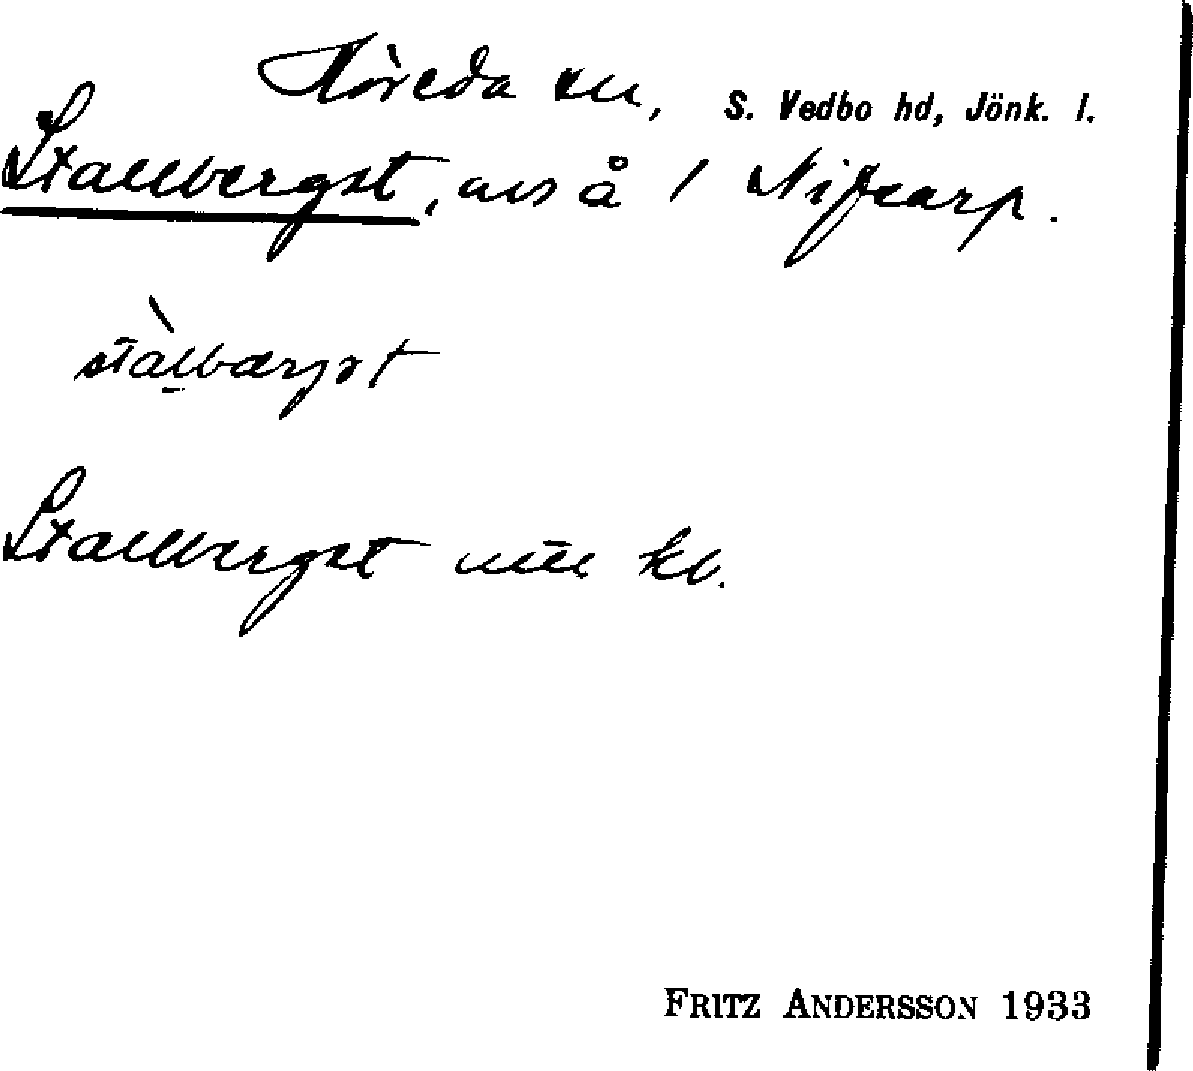 Höreda sn, S. Vedbo hd, Jönk. l.
Stallberget, avs å 1 Nifearp.
stalbærjət
Stallberget kb.
FRITZ ANDERSSON 1933